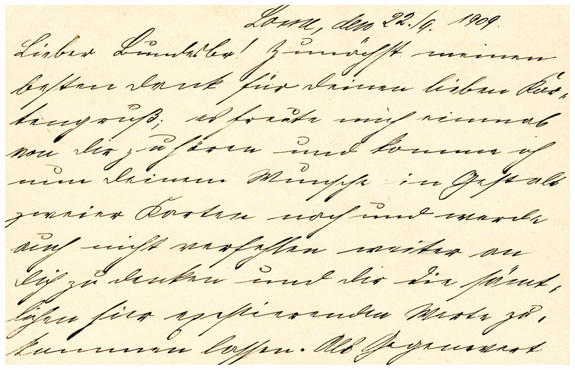 Lome, den 22./9. 1909.
Lieber Bundesbr! Zunächst meinen
besten Dank für deinen lieben Kar-
tengruß; es freute mich einmal
von dir zu hören und komme ich
nun deinem Wunsche in Gestalt
zweier Karten nach und werde
auch nicht verfehlen weiter an
dich zu denken und dir die sämt-
lichen hier existierenden Werte zu-
kommen lassen. Als Gegenwert